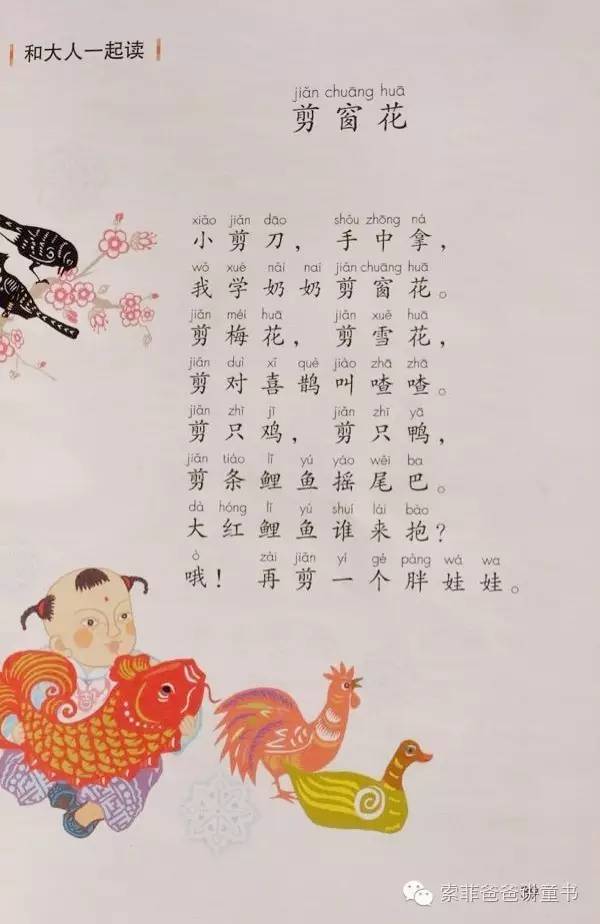 和大人一起读
jiǎn chuāng huā
剪窗花
xiǎo jiǎn dāo shǒu zhōng ná
小剪刀，手中拿，
wǒ xué nǎi nai jiǎn chuāng huā
我学奶奶剪窗花。
jiǎn méi huā jiǎn xuě huā
剪梅花，剪雪花，
jiǎn duì xǐ què jiào zhā zhā
剪对喜鹊叫喳喳。
jiǎn zhī jī jiǎn zhī yā
剪只鸡，剪只鸭，
jiǎn tiáo lǐ yú yáo wěi ba
剪条鲤鱼摇尾巴。
dà hóng lǐ yú shuí lái bào
大红鲤鱼谁来抱？
ò zài jiǎn yí gè pàng wá wa
哦！再剪一个胖娃娃。
索菲爸爸讲童书